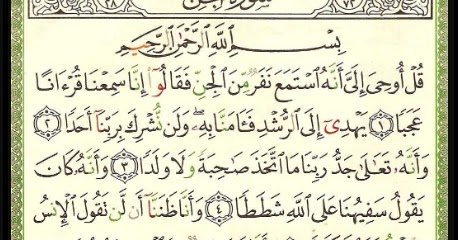 ٧٢ سورة الجن ٢٨
بِسْمِ ٱللَّهِ ٱلرَّحْمَٰنِ ٱلرَّحِيمِ
قُلْ أُوحِيَ إِلَيَّ أَنَّهُ ٱسْتَمَعَ نَفَرٌ مِّنَ ٱلْجِنِّ فَقَالُوٓا۟ إِنَّا سَمِعْنَا قُرْءَانًا
عَجَبًا ﴿١﴾ يَهْدِىٓ إِلَى ٱلرُّشْدِ فَـَٔامَنَّا بِهِۦ ۖ وَلَن نُّشْرِكَ بِرَبِّنَآ أَحَدًا ﴿٢﴾
وَأَنَّهُۥ تَعَٰلَىٰ جَدُّ رَبِّنَا مَا ٱتَّخَذَ صَٰحِبَةً وَلَا وَلَدًا ﴿٣﴾ وَأَنَّهُۥ كَانَ
يَقُولُ سَفِيهُنَا عَلَى ٱللَّهِ شَطَطًا ﴿٤﴾ وَأَنَّا ظَنَنَّآ أَن لَّن تَقُولَ ٱلْإِنسُ